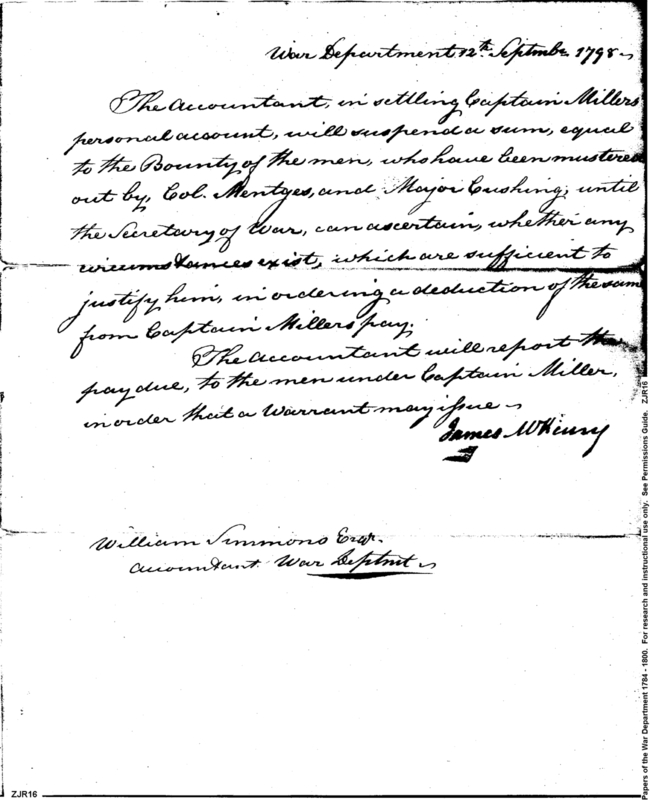 War Department 12th Septmbr. 1798
The Accountant, in settling Captain Millers
personal account, will suspend a sum, equal
to the Bounty of the men, who have been mustered
out by, Col. Mentges, and Major Cushing, until
the Secretary of War, can ascertain, whether any
circumstances exist, which are sufficient to
justify him, in ordering a deduction of the same
from Captain Millers pay.
The Accountant will report the
pay due, to the men under Captain Miller,
in order that a Warrant may issue
James McHenry
William Simmons Esqr.
Accountant War Deptmt
ZJR16
Papers of the War Department 1784 - 1800. For research and instructional use only. See Permissions Guide. ZJR16